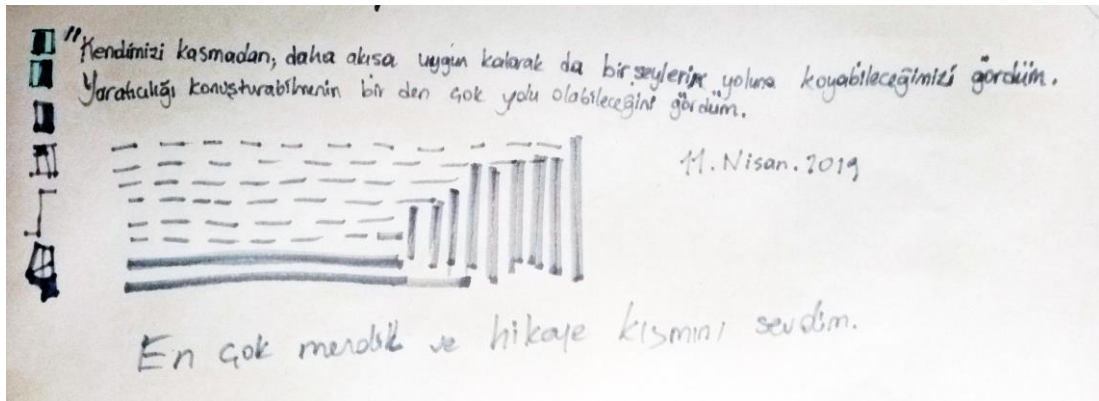 "Kendimizi kasmadan, daha akışa uygun kalarak da bir şeylerin yoluna koyabileceğimizi gördüm.
Yaratıcılığı konuşturabilmenin bir den çok yolu olabileceğini gördüm.
11.Nisan.2019
En çok ve hikaye kısmını sevdim.